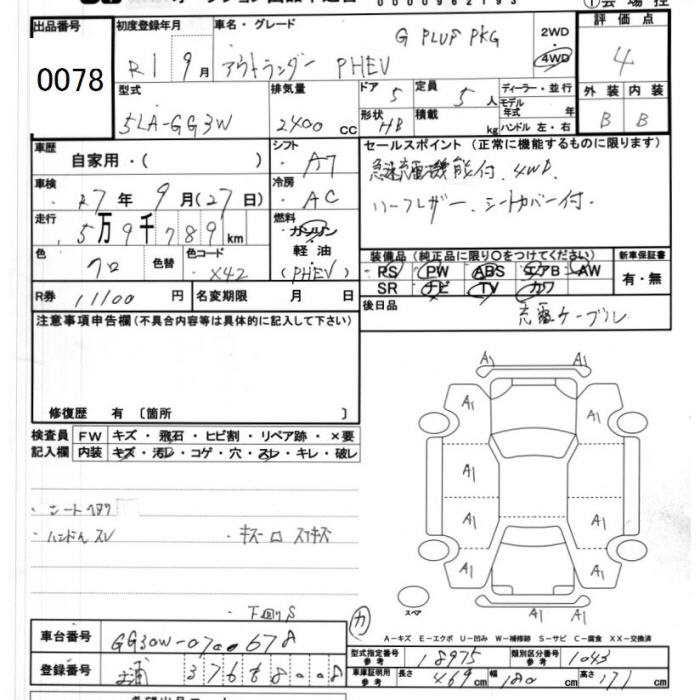 0000962193 ①会場控
出品番号 初度登録年月 車名・グレード 評価点
0078 R1 9月 アウトランダー PHEV G PLUS PKG 2WD 4WD 4
型式 排気量 ドア 5 定員 5人 ディーラー・並行 外装 内装
5LA-GG3W 2400 cc 形状 HB 積載 kg モデル年式 年 ハンドル 左・右 B B
車歴 自家用・( ) シフト A7 セールスポイント (正常に機能するものに限ります)
車検 R7年 9月(27日) 冷房 AC 急速充電機能付.4WD.
走行 5万9千789km 燃料 ガソリン ハーフレザー.シートカバー付.
色 クロ 色替 色コード X42 軽油 (PHEV) 装備品 (純正品に限り○をつけてください) 新車保証書
PS PW ABS エアB AW 有・無
SR ナビ TV カワ
R券 11100円 名変期限 月 日 後日品 充電ケーブル
注意事項申告欄(不具合内容等は具体的に記入して下さい)
修復歴 有 〔箇所 〕
検査員 FW キズ・飛石・ヒビ割・リペア跡・×要
記入欄 内装 キズ・汚レ・コゲ・穴・スレ・キレ・破レ
A1 A1
A1 A1
A1
A1 A1
A1 A1
A1 A1
・シート
・ハンドルスレ ・キズ
スペア
下回りS カ
A-キズ E-エクボ U-凹み W-補修跡 S-サビ C-腐食 XX-交換済
車台番号 GG3W-
型式指定番号 参考 18975 類別区分番号 参考 1043
登録番号
車庫証明用 参考 長さ 469cm 幅 180cm 高さ 171cm